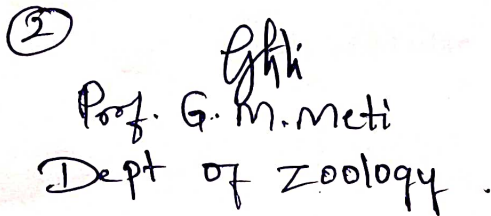 2
Prof. G. M. Meti
Dept of Zoology.